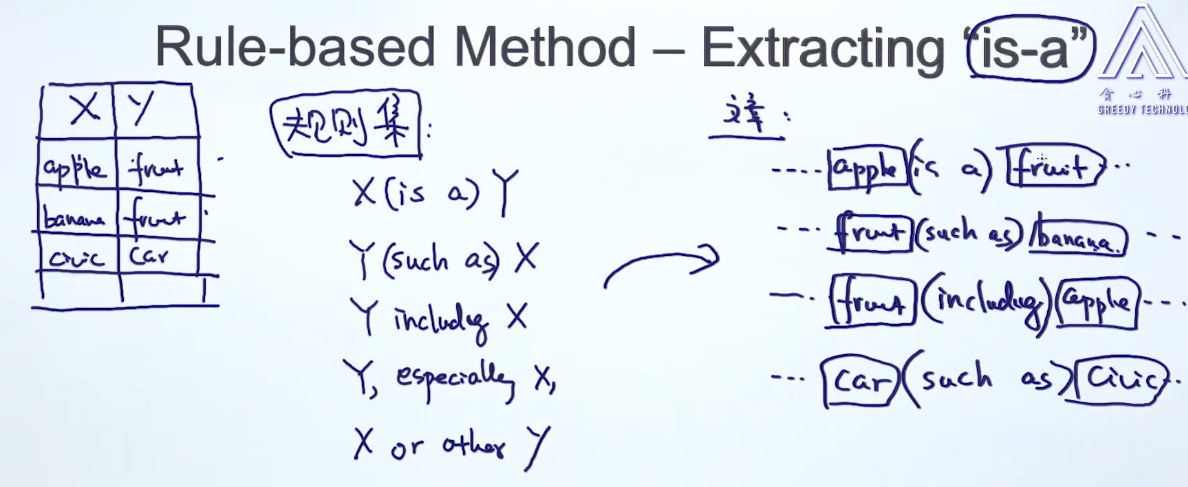 Rule-based Method – Extracting “is-a”
贪 心 科
GREEDY TECHNOLO
X Y
apple fruit
banana fruit
civic car
规则集:
X (is a) Y
Y (such as) X
Y including X
Y, especially X,
X or other Y
文章:
---- apple (is a) fruit ---
--- fruit (such as) banana --
--- fruit (including) apple ---
--- car (such as) civic --